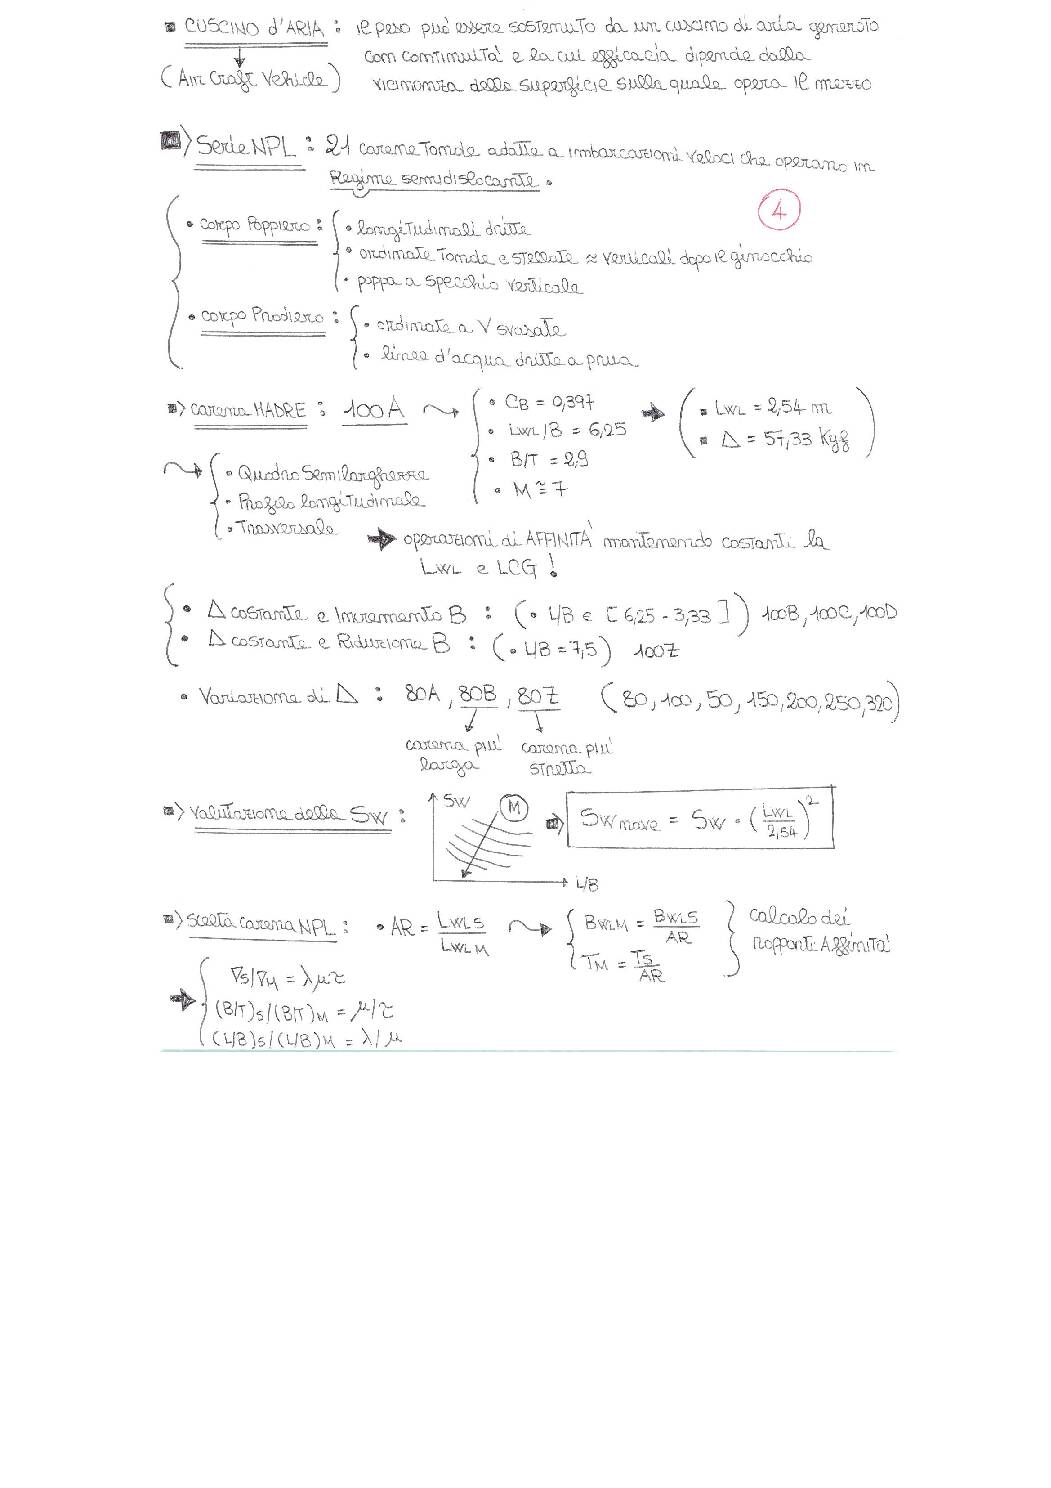 ▪ CUSCINO d'ARIA : il peso può essere sostenuto da un cuscino di aria generato
con continuità e la cui efficacia dipende dalla
(Air Craft Vehicle) vicinanza della superficie sulla quale opera il mezzo
Serie NPL : 21 carene Tonde adatte a imbarcazioni veloci che operano in
Regime semidislocante.
4
• corpo Poppiero : • longitudinali dritte
• ordinate Tonde e stellate ≈ verticali dopo il ginocchio
• poppa a specchio verticale
• corpo Prodiero : • ordinate a V svasate
• linee d'acqua dritte a prua
⇒ carena MADRE : 100A • CB = 0,397
• LWL/B = 6,25
• B/T = 2,9
• M ≅ 7
▪ LWL = 2,54 m
▪ Δ = 57,33 Kgf
• Quadro Semilarghezze
• Profilo longitudinale
• Trasversale
→ operazioni di AFFINITÀ mantenendo costanti la
LWL e LCG !
• Δ costante e Incremento B : (• L/B ∈ [6,25 - 3,33]) 100B, 100C, 100D
• Δ costante e Riduzione B : (• L/B = 7,5) 100Z
• Variazione di Δ : 80A, 80B, 80Z (80, 100, 50, 150, 200, 250, 320)
carena più carena più
larga stretta
⇒ Valutazione della SW : SW M L/B
SW nave = SW · (LWL/2,54)²
⇒ scelta carena NPL : • AR = LWLS/LWLM
BWLM = BWLS/AR
TM = TS/AR
calcolo dei
rapporti Affinità
∇S/∇M = λμτ
(B/T)S/(B/T)M = μ/τ
(L/B)S/(L/B)M = λ/μ